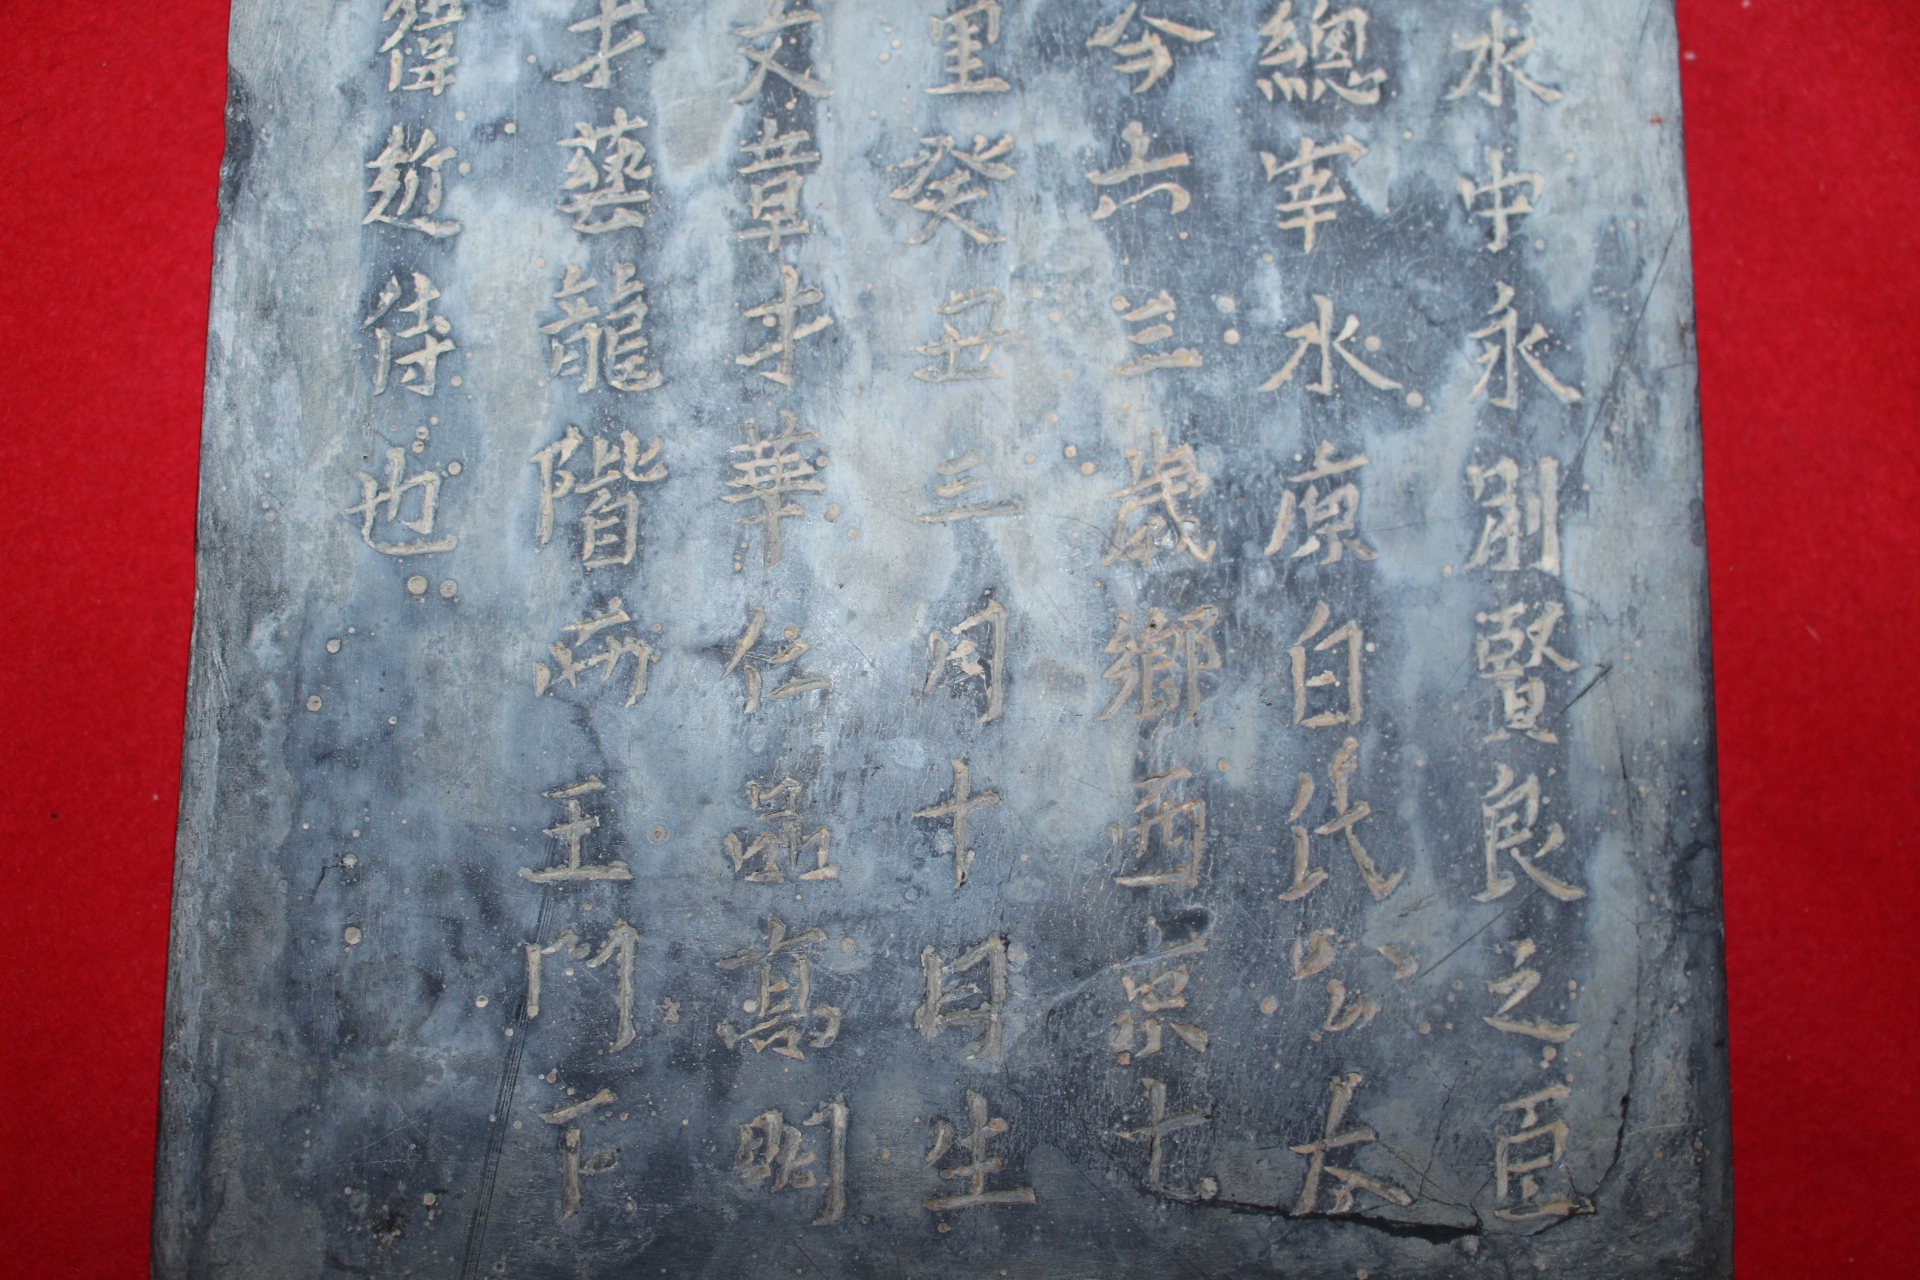 水中永別賢良之臣
總宰水原白氏公太
今六三歲鄉西京十
里癸丑三月十日生
文章才華仁品高明
才藝龍階兩王門下
偉近侍也